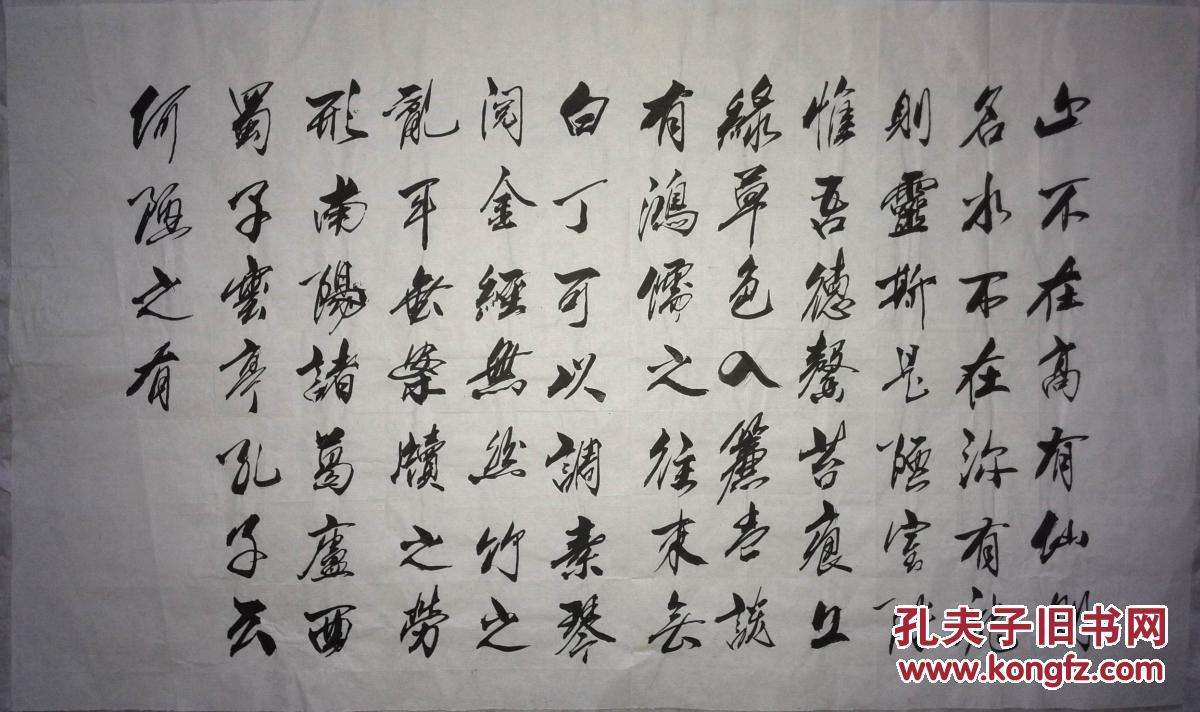 山不在高有仙則
名水不在深有龍
則靈斯是陋室
惟吾德馨苔痕上
綠草色入簾青談
有鴻儒之往來無
白丁可以調素琴
閱金經無絲竹之
亂耳無案牘之勞
形南陽諸葛廬西
蜀子雲亭孔子云
何陋之有
孔夫子旧书网
www.kongfz.com